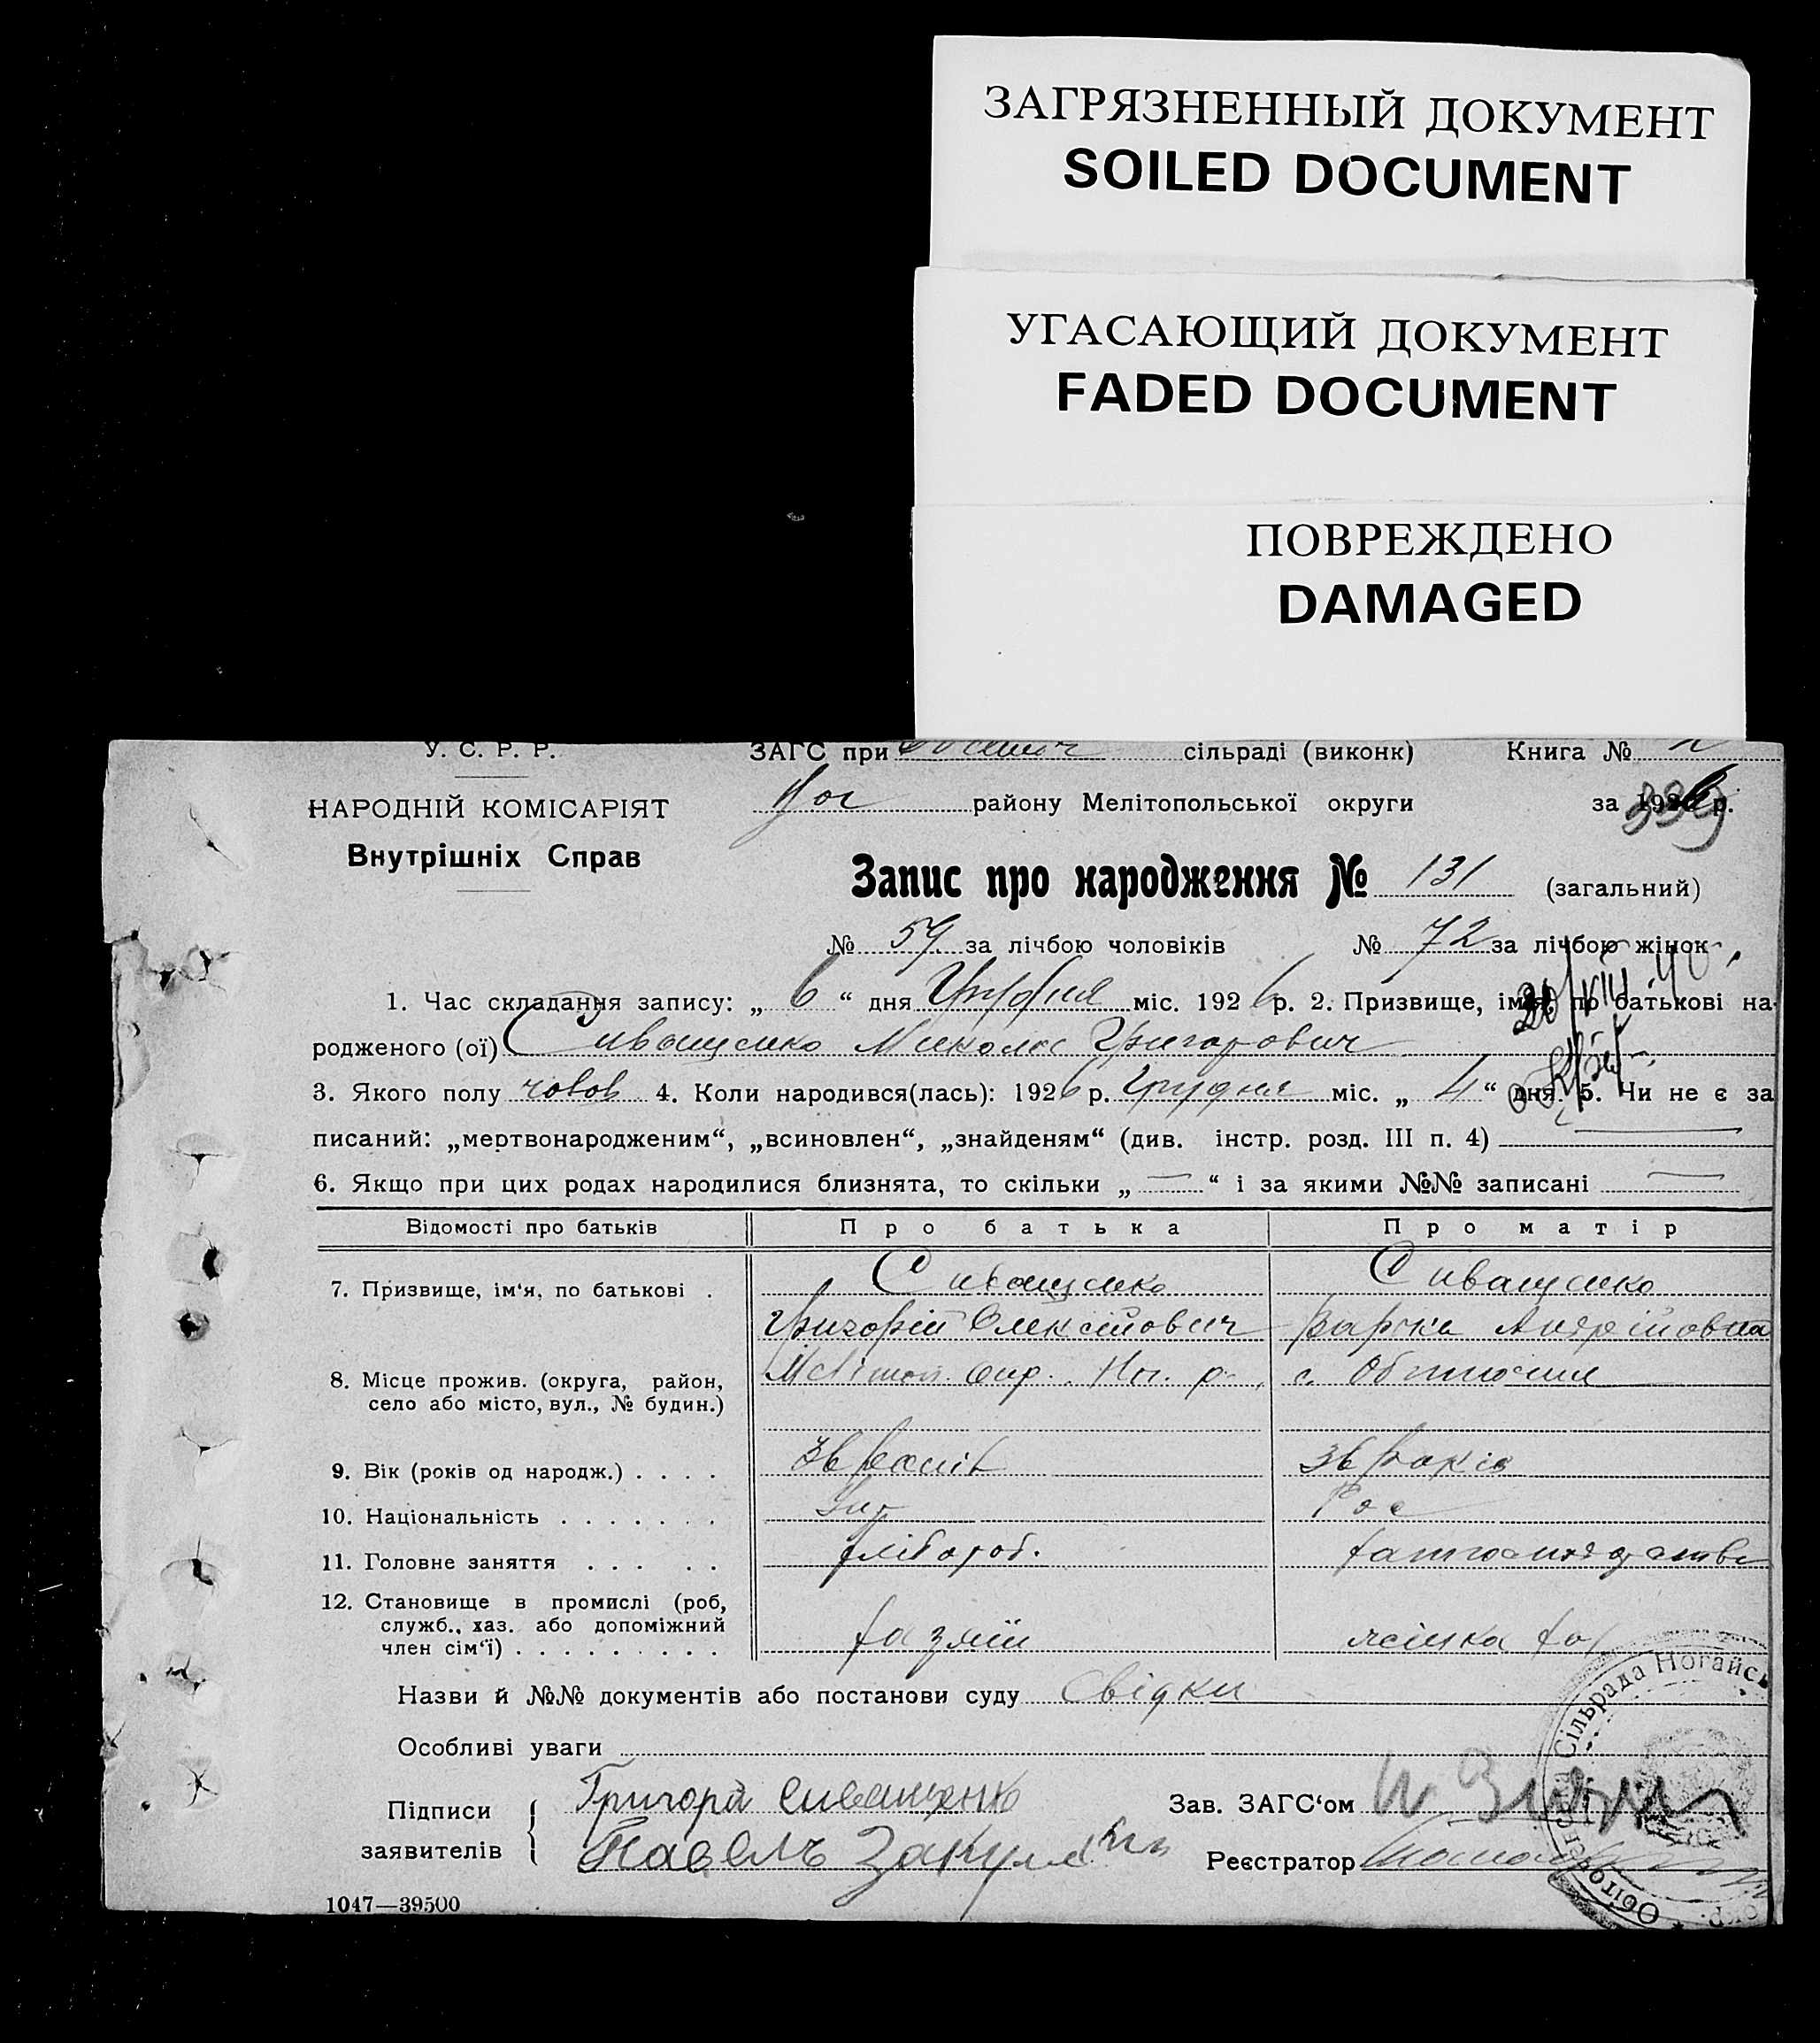 ЗАГРЯЗНЕННЫЙ ДОКУМЕНТ
SOILED DOCUMENT
УГАСАЮЩИЙ ДОКУМЕНТ
FADED DOCUMENT
ПОВРЕЖДЕНО
DAMAGED
У. С. Р. Р. ЗАГС при сільраді (виконк) Книга №
Ног району Мелітопольської округи за 1926 р.
339
НАРОДНІЙ КОМІСАРІЯТ
Внутрішніх Справ
Запис про народження № 131 (загальний)
№ 59 за лічбою чоловіків № 72 за лічбою жінок
1. Час складання запису: „ 6 “ дня Грудня міс. 1926 р. 2. Призвище, імя, по батькові на-
родженого (ої) Сиващенко Микола Григорович
3. Якого полу чолов 4. Коли народився(лась): 1926 р. Грудня міс. „ 4 “ дня. 5. Чи не є за
писаний: „мертвонародженим“, „всиновлен“, „знайденям“ (див. інстр. розд. III п. 4)
6. Якщо при цих родах народилися близнята, то скільки „ — “ і за якими №№ записані —
Відомості про батьків Про батька Про матір
7. Призвище, ім‘я, по батькові . Сиващенко Сиващенко
Григорій Олексійович Варька Андрійовна
8. Місце прожив. (округа, район, Меліток. окр. Ног. р. с. Обиточня
село або місто, вул., № будин.)
9. Вік (років од народж.) . . . . 36 років 36 років
10. Національність . . . . . . . Укр Рос
11. Головне заняття . . . . . хлібороб.
12. Становище в промислі (роб,
служб., хаз. або допоміжний
член сім‘ї) . . . . . . . . . хазяїн жінка хаз
Назви й №№ документів або постанови суду Свідки
Особливі уваги
Підписи
заявителів
Григорій Сиващенко
Павелъ
Зав. ЗАГС‘ом
Реєстратор
Сільрада Ногайськ
1047—39500